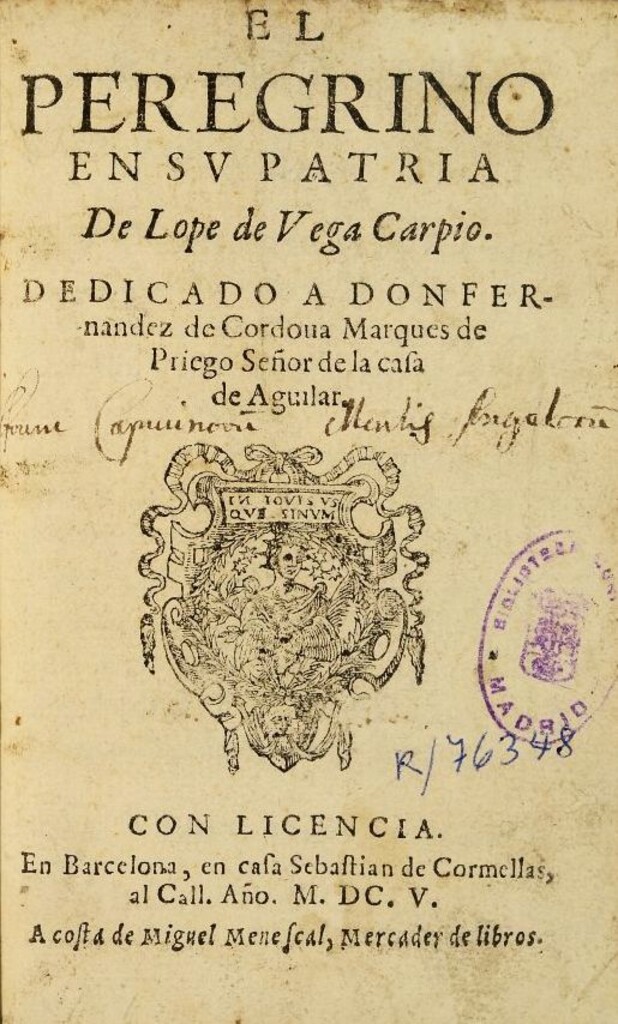 EL
PEREGRINO
EN SV PATRIA
De Lope de Vega Carpio.
DEDICADO A DON FER-
nandez de Cordoua Marques de
Priego Señor de la caſa
de Aguilar.
Capucinorū Montis Angelorū
IN IOVIS VS
QVE SINVM
BIBLIOTECA
MADRID
R/76348
CON LICENCIA.
En Barcelona, en caſa Sebaſtian de Cormellas,
al Call. Año. M. DC. V.
A coſta de Miguel Meneſcal, Mercader de libros.